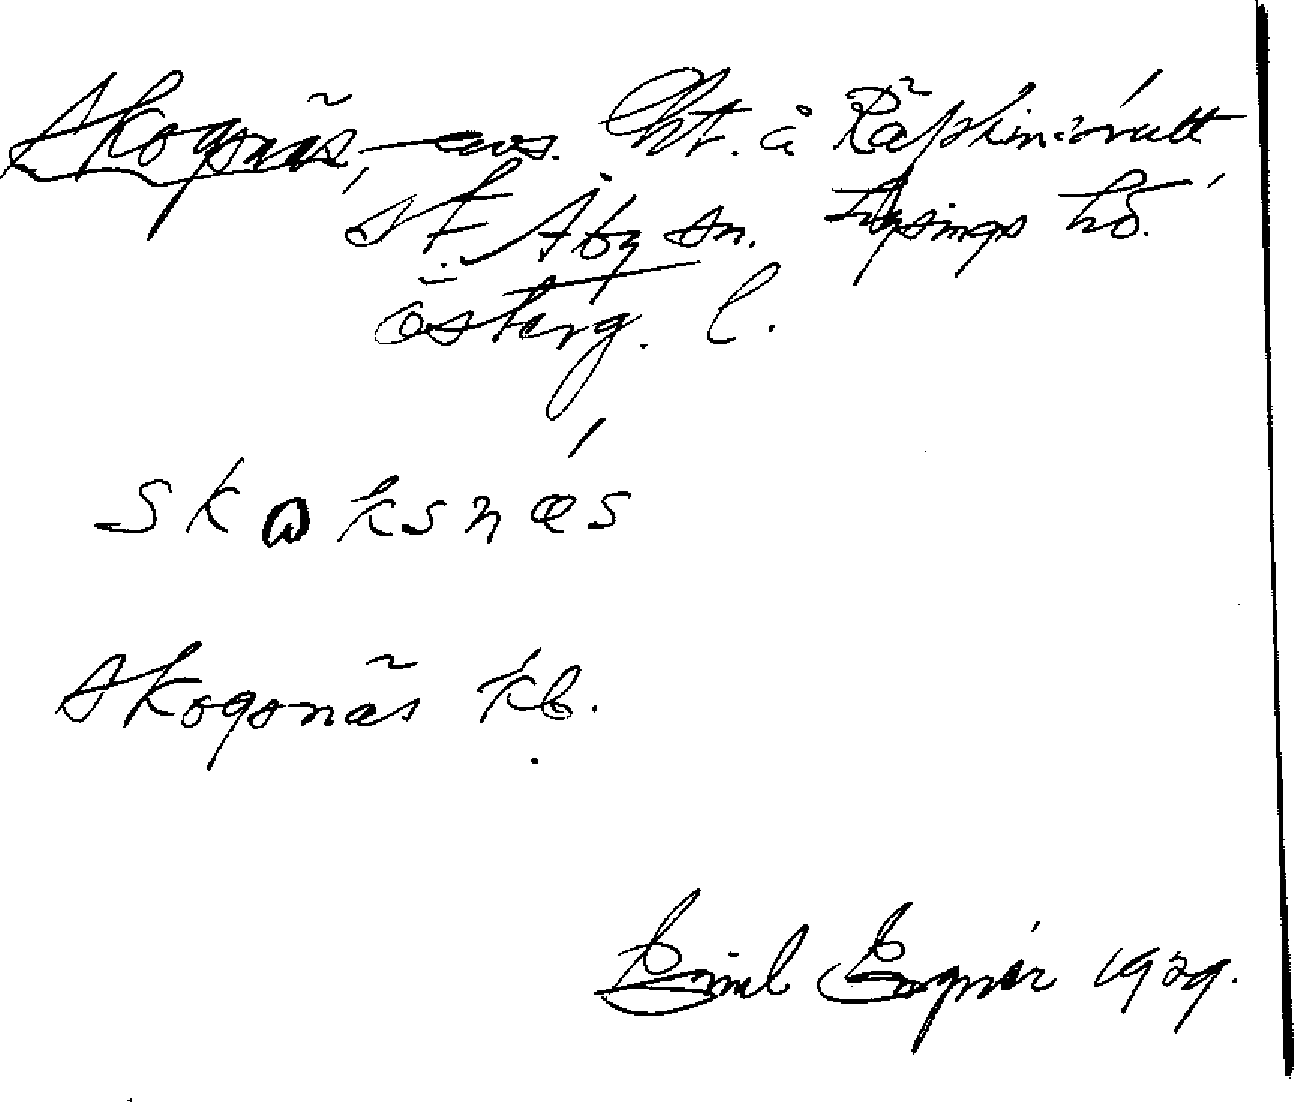 Skogsnäs, avs. lht. å Räpplinge
St. Åby sn. Lysings hd.
Österg. l.
skɷksnæ´s
Skogsnäs kb.
Emil Engnér 1929.